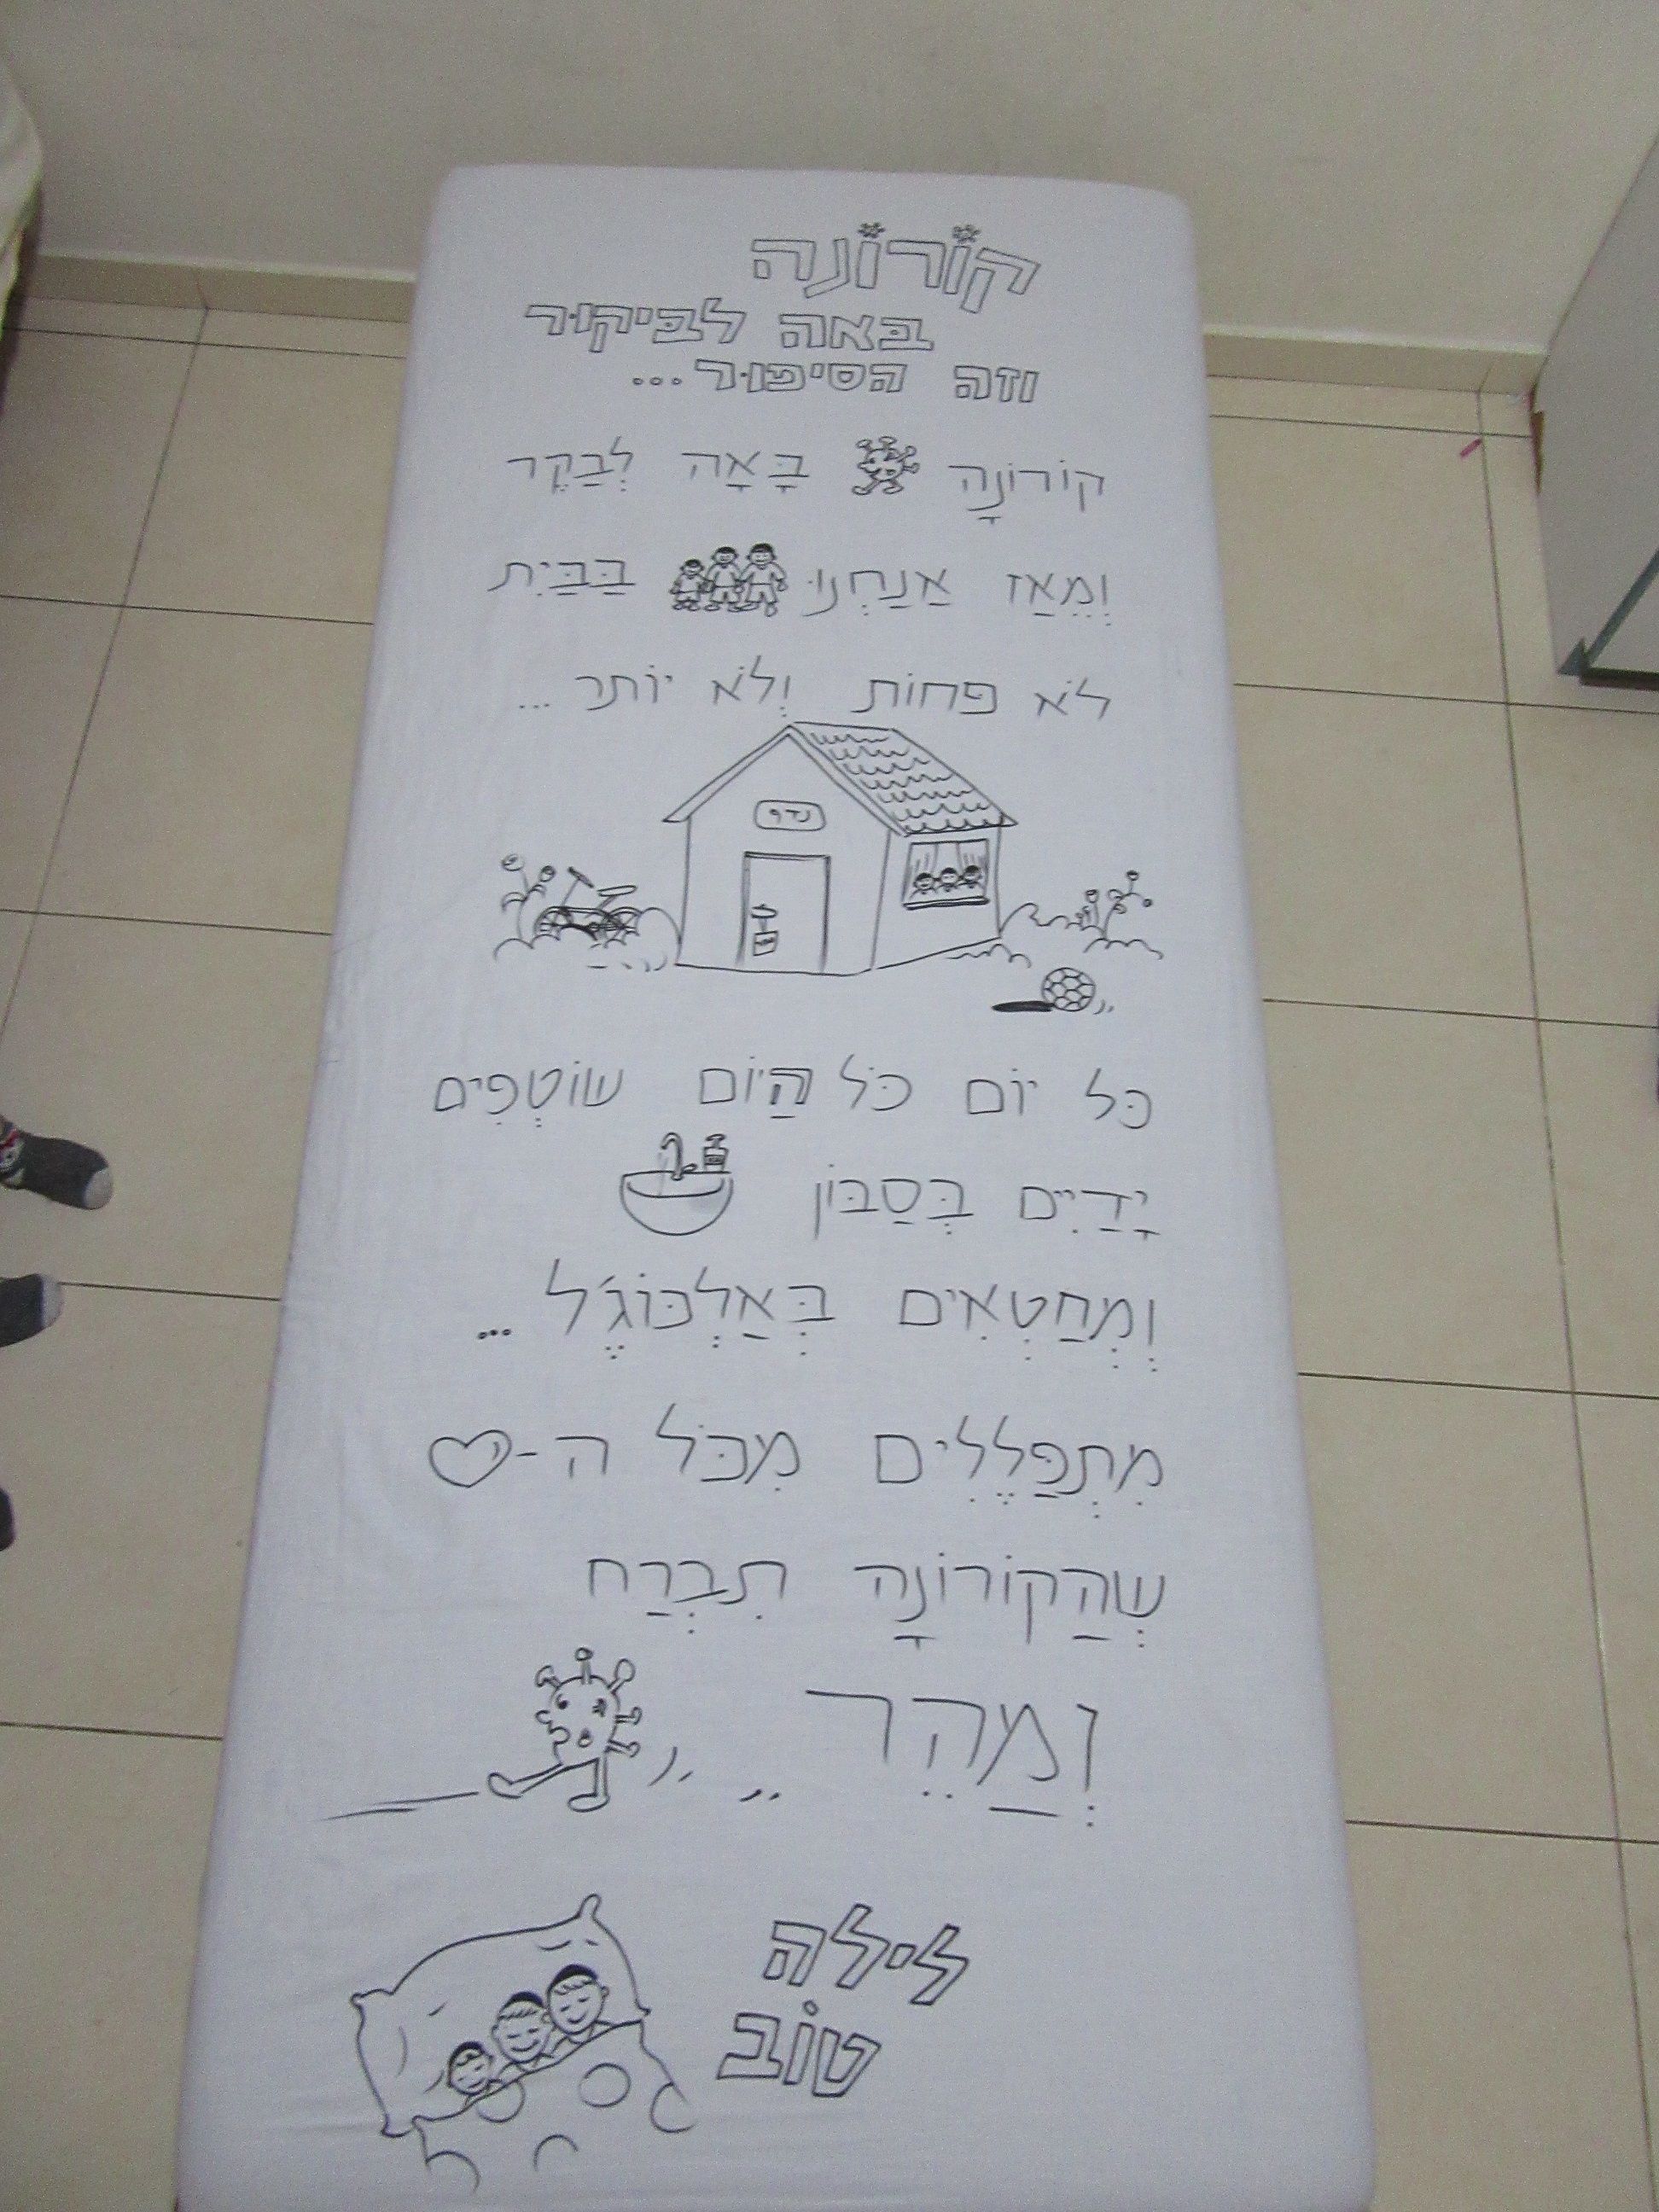 קוֹרוֹנה
באה לביקור
וזה הסיפור...
קוֹרוֹנָה בָּאָה לְבַקֶר
וְמֵאַז אֲנַחְנוּ בַּבַּיִת
לֹא פחוֹת וְלֹא יוֹתר...
כל יוֹם כֹּל הַיּוֹם שוֹטְפִים
יָדַיִים בְּסַבּוֹן
וְמְחַטְאִים בְּאַלְכּוֹגֶ'ל...
מִתְפַּלֶלִים מִכֹּל ה-
שְהַקוֹרוֹנָה תִבְרַח
וְמַהֵר
לילה
טוֹב